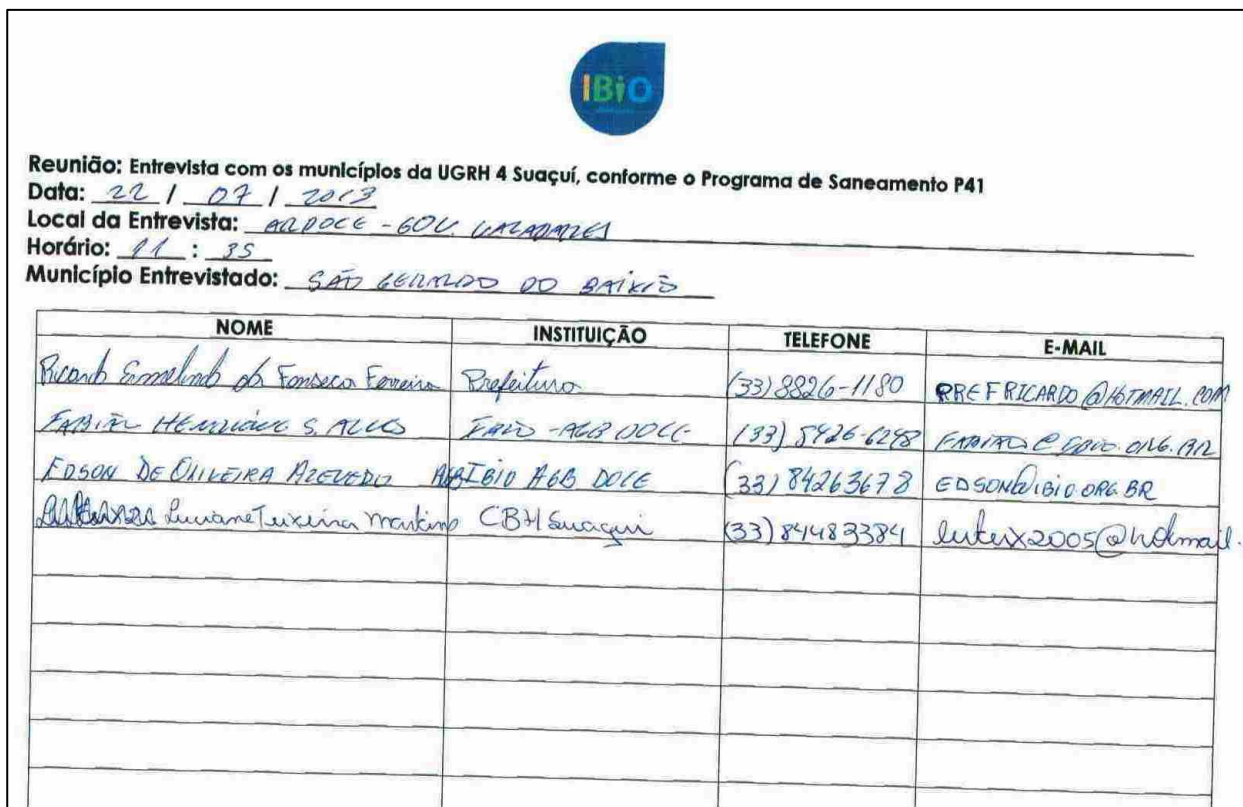 IBiO
Reunião: Entrevista com os municípios da UGRH 4 Suaçuí, conforme o Programa de Saneamento P41
Data: 22 / 07 / 2013
Local da Entrevista: - GOV. VALADARES
Horário: 11 : 35
Município Entrevistado: SÃO GERALDO DO BAIXIO
NOME INSTITUIÇÃO TELEFONE E-MAIL
Ricardo Ermelindo da Fonseca Ferreira Prefeitura (33) 8826-1180 PREFRICARDO@HOTMAIL.COM
HENRIQUE S. ALVES IBIO - AGB DOCE (33) 8426-6248
EDSON DE OLIVEIRA AZEVEDO IBIO AGB DOCE (33) 84263678 EDSON@IBIO.ORG.BR
Luciane Teixeira Martins CBH Suaçui (33) 84483384 lutexx2005@hotmail.